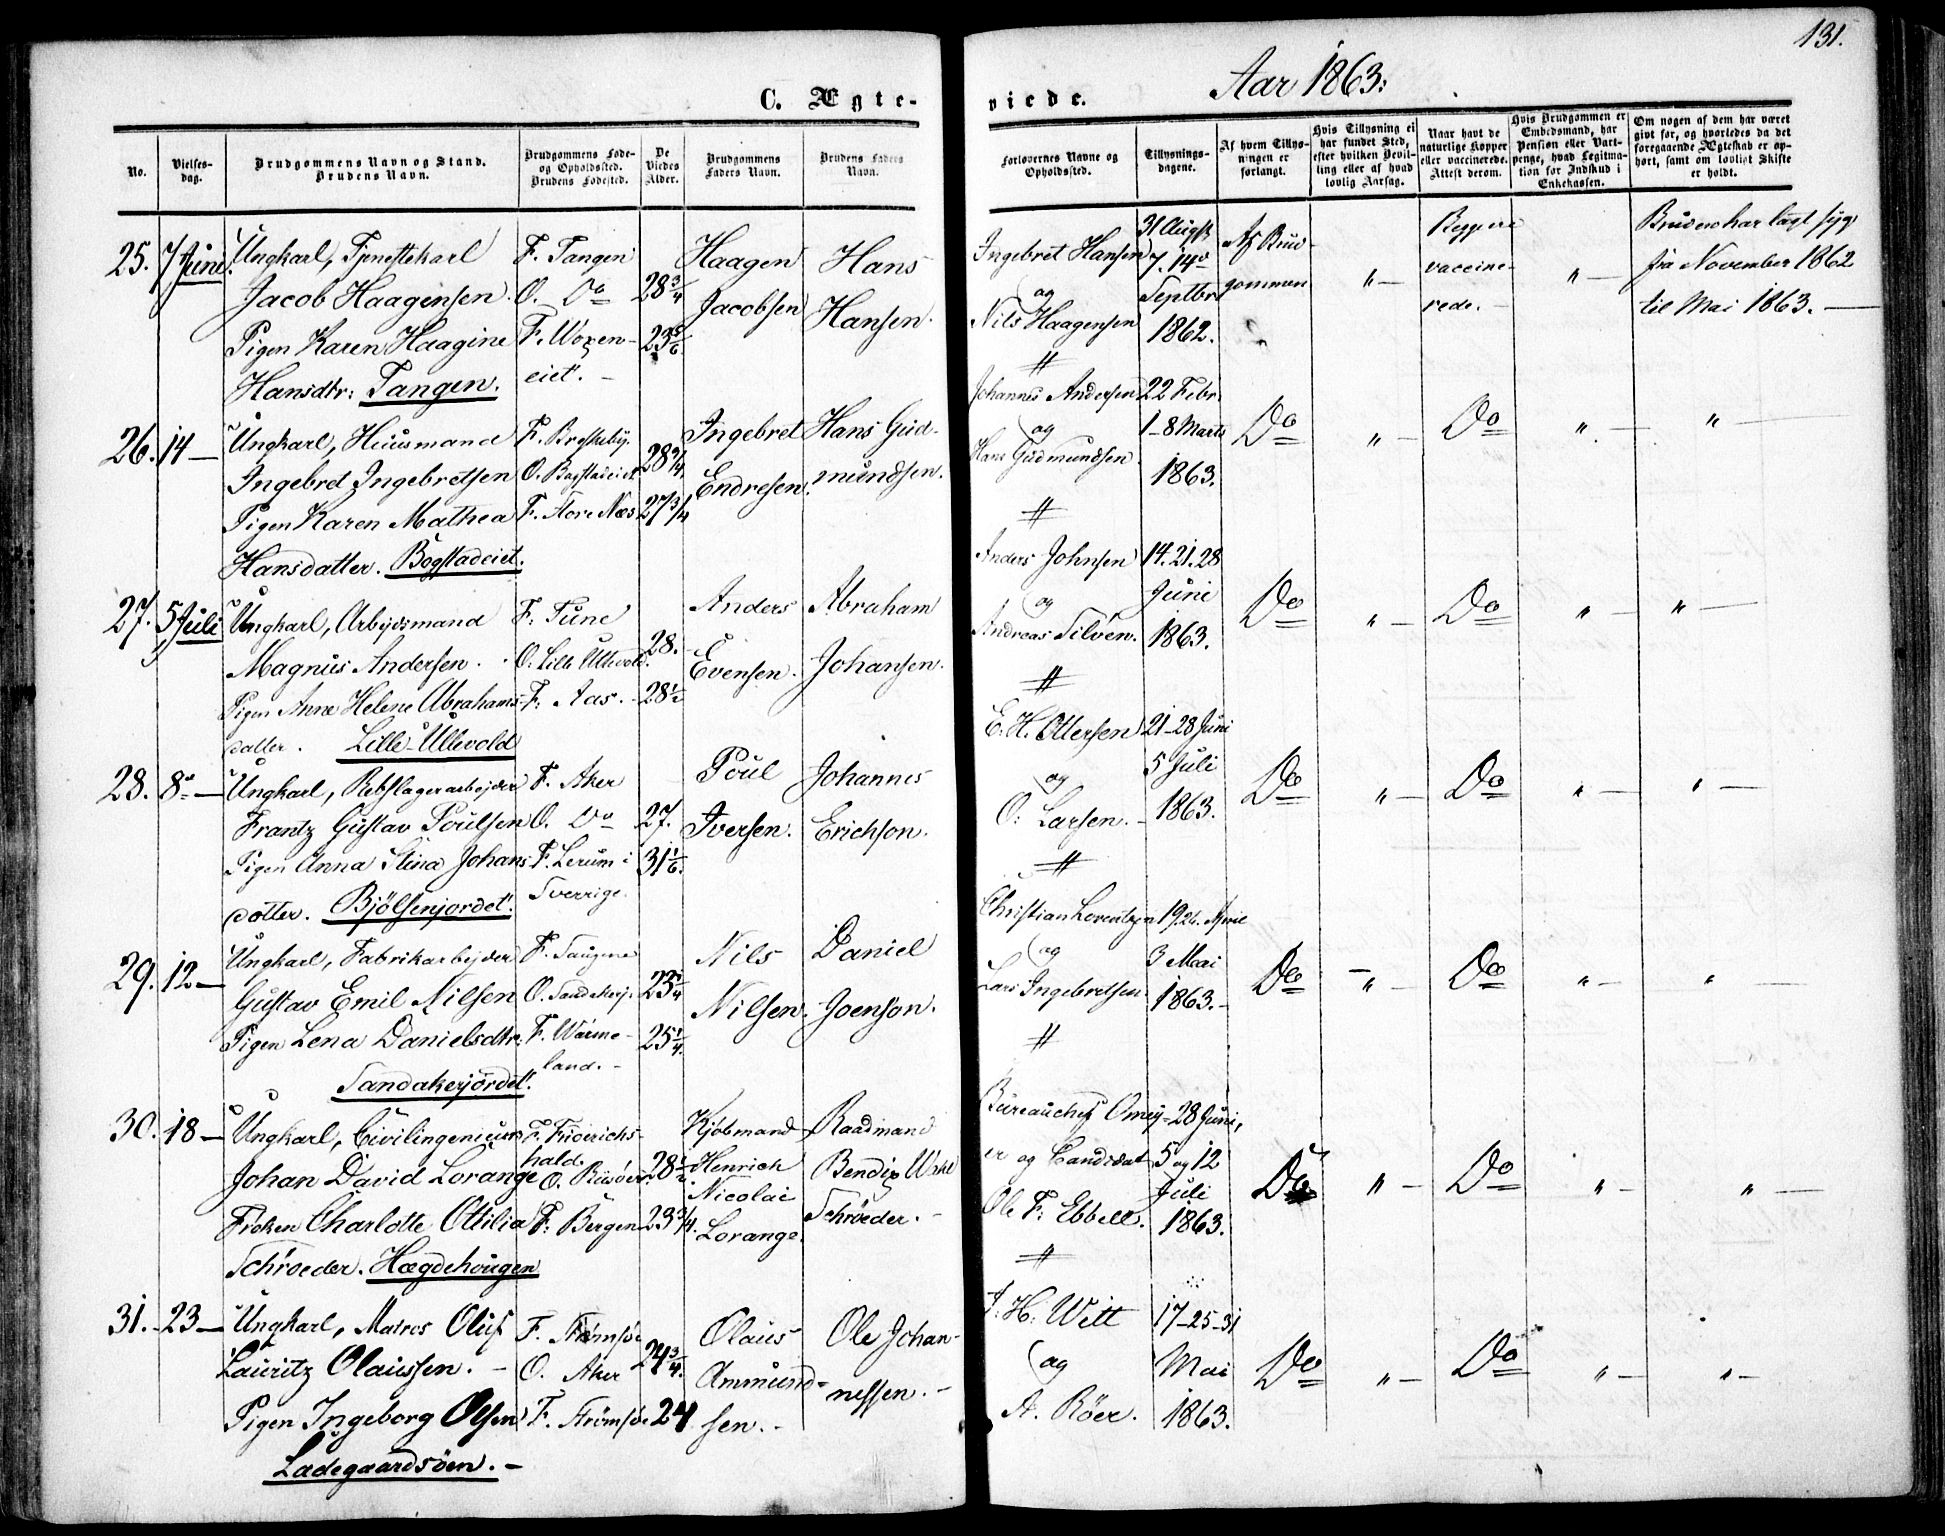 131.
C. Ægteviede.
Aar 1863.
No.
Vielsesdag.
Brudgommens Navn og Stand.
Brudens Navn.
Brudgommens Føde-
og Opholdssted.
Brudens Fødested.
De
Viedes
Alder.
Brudgommens
Faders Navn.
Brudens Faders
Navn.
Forlovernes Navne og
Opholdssted.
Tillysnings-
dagene.
Af hvem Tillys-
ningen er
forlangt.
Hvis Tillysning ei
har fundet Sted,
efter hvilken Bevil-
ling eller af hvad
lovlig Aarsag.
Naar havt de
naturlige Kopper
eller vaccinerede.
Attest derom.
Hvis Brudgommen er
Embedsmand, har
Pension eller Vart-
penge, hvad Legitima-
tion for Indskud i
Enkekassen.
Om nogen af dem har været
givt før, og hvorledes da det
foregaaende Ægteskab er op-
hørt, samt om lovligt Skifte
er holdt.
25. 7 Juni.
Ungkarl, Tjenestekarl
Jacob Haagensen.
Pigen Karen Haagine
Hansdtr: Tangen.
F. Tangen
O. Do
F. Woxen-
eiet. -
28 3/4
23 5/6
Haagen
Jacobsen
Hans
Hansen.
Ingebret Hansen
og
Nils Haagensen
31 Augst
7. 14de
Septbr
1862.
Af Brud-
gommen
" -
Begge
vaccine-
rede. -
" -
Bruden har lagt syg
fra November 1862
til Mai 1863. -
26. 14 -
Ungkarl, Huusmand
Ingebret Ingebretsen
Pigen Karen Mathea
Hansdatter. Bogstadeiet.
F. Brøskeby.
O. Bogstadeiet
F. Store Næs
28 3/4
27 3/4
Ingebret
Endresen.
Hans Gud-
mundsen.
Johannes Andersen
og
Hans Gudmundsen.
22 Febr
1-8 Marts
1863.
Do
" -
Do
" -
" -
27. 5 Juli
Ungkarl, Arbejdsmand
Magnus Andersen.
Pigen Anne Helene Abrahams-
datter. Lille-Ullevold
F. Tune
O. Lille Ullevold.
F. Aas. -
28.
28 1/2
Anders
Evensen.
Abraham
Johansen.
Anders Johnsen
og
Andreas Silven.
14. 21. 28
Juni
1863.
Do
" -
Do
" -
" -
28. 8de -
Ungkarl, Rebslagerarbejder
Frantz Gustav Poulsen
Pigen Anna Stina Johans
dotter. Bjølsenjordet.
F. Aker
O. Do
F. Lerum i
Sverrige.
27.
31 1/6.
Poul
Iversen.
Johannes
Erichson.
E. H. Ottersen
og
O. Larsen. -
21-28 Juni
5 Juli
1863.
Do
" -
Do
" -
" -
29. 12 -
Ungkarl, Fabrikarbejder
Gustav Emil Nilsen
Pigen Lena Danielsdtr:
Sandakerjordet.
F. Saugene
O. Sandakerj.
F. Wärme-
land. -
25 1/4.
Nils
Nilsen.
Daniel
Joenson.
Christian Lorentzen
og
Lars Ingebretsen
19. 26. April
3 Mai
1863. -
Do
" -
Do
" -
"
30. 18 -
Ungkarl, Civilingenieur
Johan David Lorange
Frøken Charlotte Ottilia
Schrøeder. Hægdehougen
F. Friderichs-
hald
O. Risøer
F. Bergen
28 1/2.
23 3/4.
Kjøbmand
Henrich
Nicolai
Lorange.
Raadmand
Bendix
Schrøeder. -
Bureauchef Omej-
er og Candidat
Ole F. Ebbell.
28 Juni,
5 og 12
Juli
1863.
Do
" -
Do
" -
" -
31. 23 -
Ungkarl, Matros Oluf
Lauritz Olaussen. -
Pigen Ingeborg Olsen
Ladegaardsøen. -
F. Strømsøe
O. Aker
F. Strømsøe
24 3/4.
24
Olaus
Ammund-
sen. -
Ole Johan-
nessen. -
J. H. Witt
og
A. Röer.
17-25-31
Mai
1863.
Do
" -
Do
" -
" -